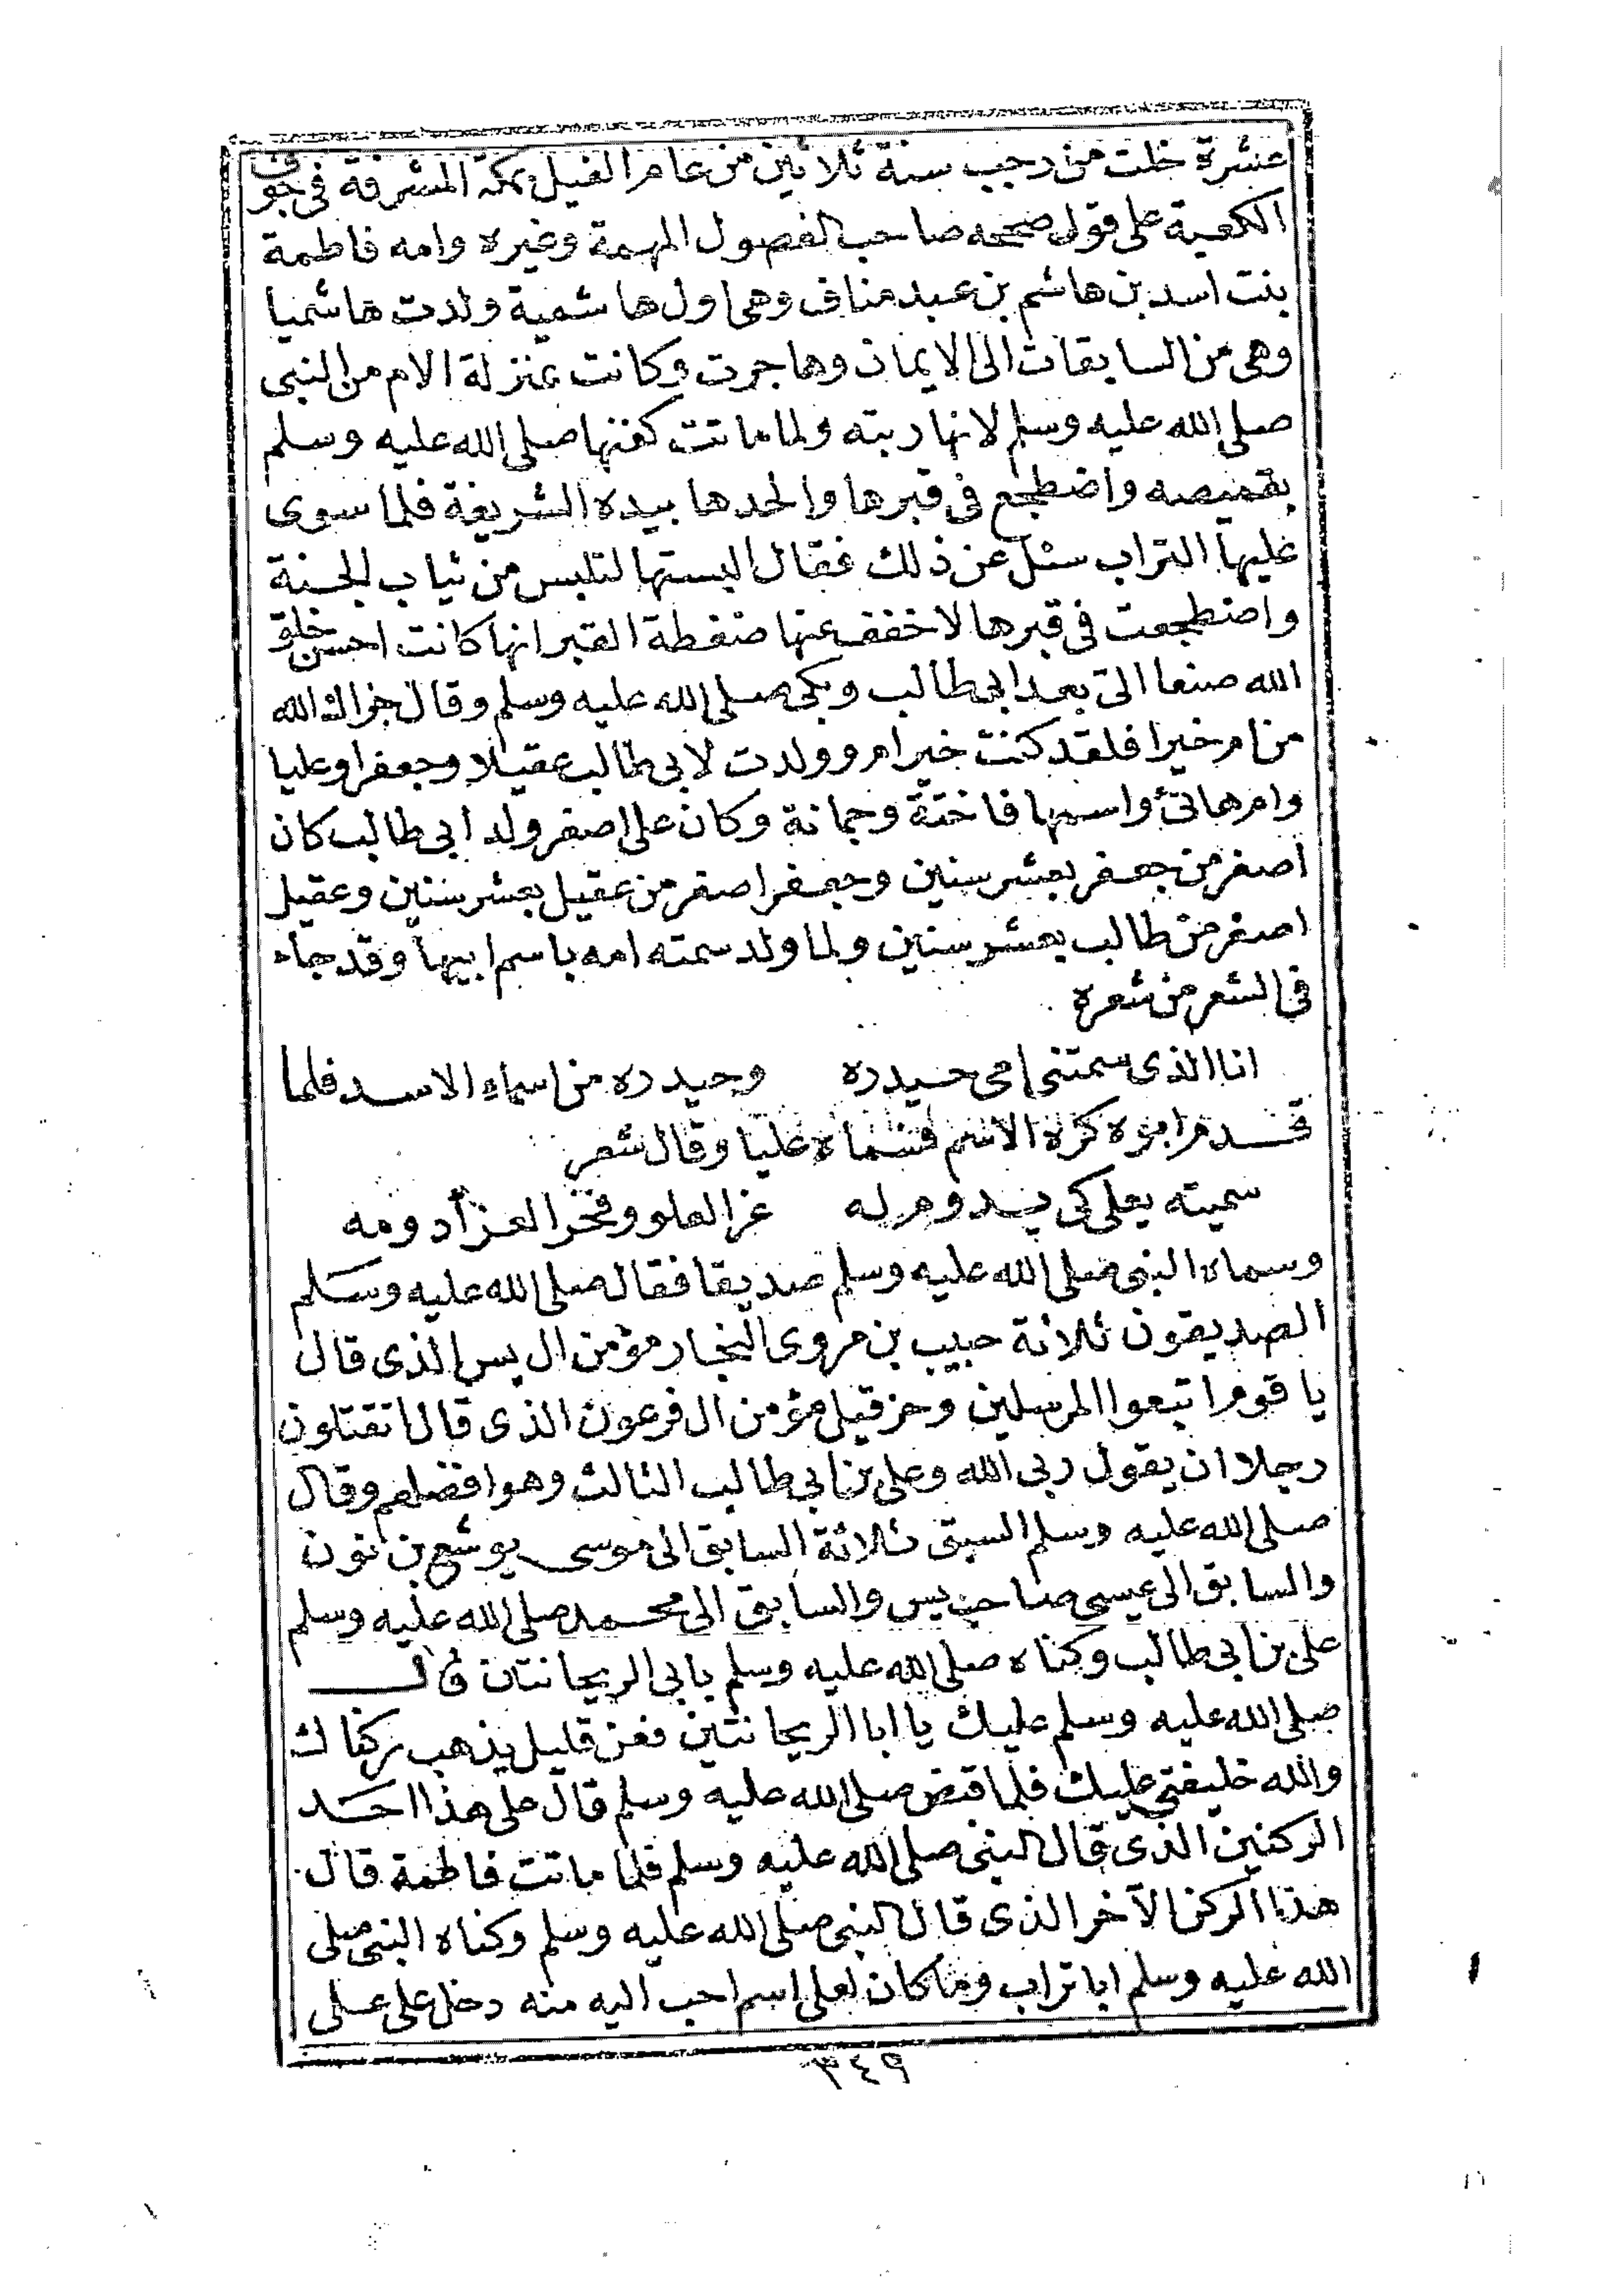 عشرة خلت من رجب سنة ثلاثين من عام الفيل بمكة المشرفة في جوف
الكعبة على قول صححه صاحب الفصول المهمة وغيره وامه فاطمة
بنت اسد بن هاشم بن عبد مناف وهى اول هاشمية ولدت هاشميا
وهى من السابقات الى الايمان وهاجرت وكانت بمنزلة الام من النبى
صلى الله عليه وسلم لانها ربته ولما ماتت كفنها صلى الله عليه وسلم
بقميصه واضطجع فى قبرها والحدها بيده الشريفة فلما سوى
عليها التراب سئل عن ذلك فقال البستها لتلبس من ثياب الجنة
واضطجعت فى قبرها لاخفف عنها ضغطة القبر انها كانت احسن خلق
الله صنعا الى بعد ابى طالب وبكى صلى الله عليه وسلم وقال جزاك الله
من ام خيرا فلقد كنت خير ام وولدت لابى طالب عقيلا وجعفرا وعليا
وام هانئ واسمها فاختة وجمانة وكان على اصغر ولد ابى طالب كان
اصغر من جعفر بعشر سنين وجعفر اصغر من عقيل بعشر سنين وعقيل
اصغر من طالب بعشر سنين ولما ولد سمته امه باسم ابيها وقد جاء
فى الشعر من شعره
انا الذى سمتنى امى حيدره وحيدره من اسماء الاسد فلما
قدم ابوه كره الاسم فسماه عليا وقال شعر
سميته بعلى كى يدوم له عز العلو وفخر العز أدومه
وسماه النبى صلى الله عليه وسلم صديقا فقال صلى الله عليه وسلم
الصديقون ثلاثة حبيب بن مروى النجار مؤمن ال يس الذى قال
يا قوم اتبعوا المرسلين وحزقيل مؤمن ال فرعون الذى قال اتقتلون
رجلا ان يقول ربى الله وعلى بن ابى طالب الثالث وهو افضلهم وقال
صلى الله عليه وسلم السبق ثلاثة السابق الى موسى يوشع بن نون
والسابق الى عيسى صاحب يس والسابق الى محمد صلى الله عليه وسلم
على بن ابى طالب وكناه صلى الله عليه وسلم بابى الريحانتان قال
صلى الله عليه وسلم عليك يا ابا الريحانتين فعن قليل يذهب ركناك
والله خليفتى عليك فلما قبض صلى الله عليه وسلم قال على هذا احد
الركنين الذى قال النبى صلى الله عليه وسلم فلما ماتت فاطمة قال
هذا الركن الآخر الذى قال النبى صلى الله عليه وسلم وكناه النبى صلى
الله عليه وسلم ابا تراب وما كان لعلى اسم احب اليه منه دخل على على
٣٤٩